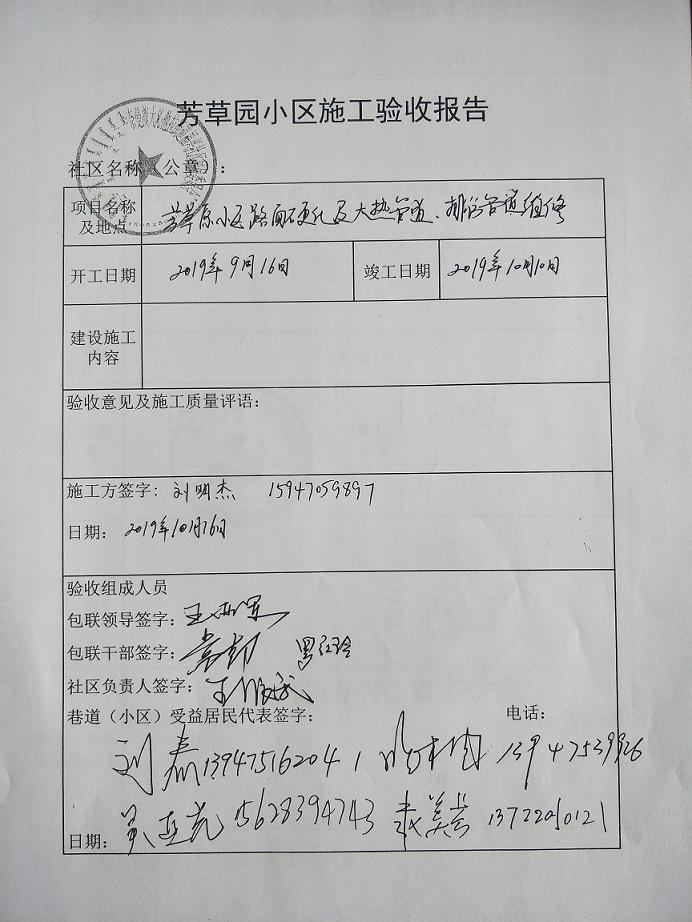 芳草园小区施工验收报告
社区名称（公章）：
项目名称及地点 芳草原小区路面硬化及大热管道、排污管道维修
开工日期 2019年9月16日 竣工日期 2019年10月10日
建设施工内容
验收意见及施工质量评语：
施工方签字：刘明杰 15947059897
日期：2019年10月16日
验收组成人员
包联领导签字：
包联干部签字：
社区负责人签字：
巷道（小区）受益居民代表签字： 电话：
刘 13947516204
15628394743
日期：